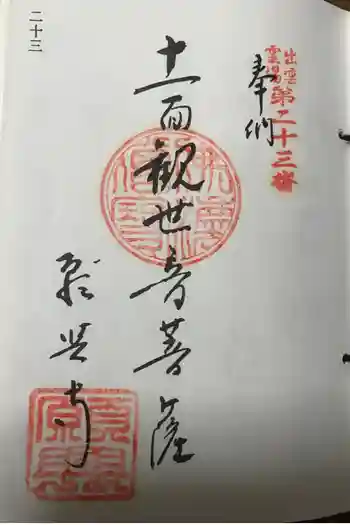 出雲
霊場
第二十三番
奉拝
十一面観世音菩薩
願興寺
二十三